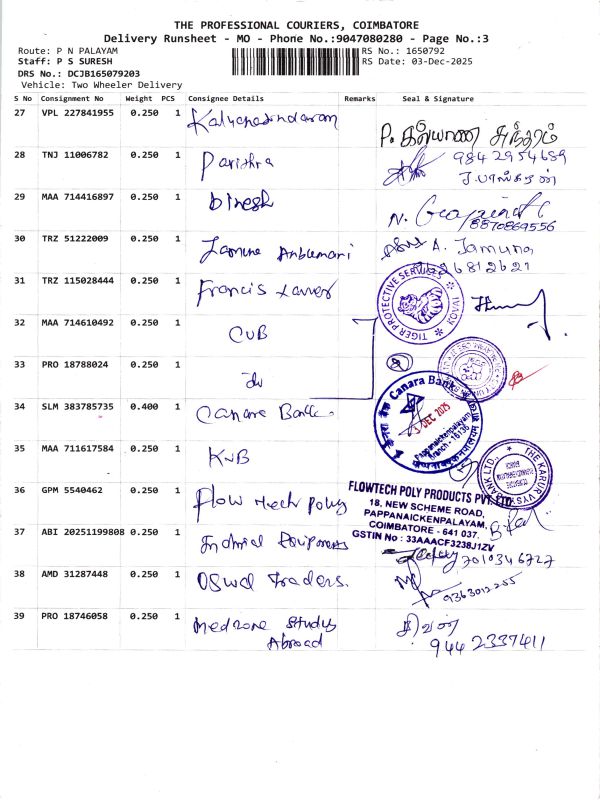 THE PROFESSIONAL COURIERS, COIMBATORE
Delivery Runsheet - MO - Phone No.:9047080280 - Page No.:3
Route: P N PALAYAM
RS No.: 1650792
Staff: P S SURESH
RS Date: 03-Dec-2025
DRS No.: DCJB165079203
Vehicle: Two Wheeler Delivery
S No Consignment No Weight PCS Consignee Details Remarks Seal & Signature
27 VPL 227841955 0.250 1 Kalyanasundaram
P. கல்யாண சுந்தரம்
28 TNJ 11006782 0.250 1 Pavithra
9842954689
29 MAA 714416897 0.250 1 Dinesh
N.
8870869556
30 TRZ 51222009 0.250 1 Jamuna
A. Jamuna
31 TRZ 115028444 0.250 1 Francis Xavier
TIGER PROTECTIVE SERVICES KOVAI
32 MAA 714610492 0.250 1 CUB
33 PRO 18788024 0.250 1
34 SLM 383785735 0.400 1 Canara Bank
Canara Bank
3 DEC 2025
Pappanaickenpalayam
Branch - 16136
35 MAA 711617584 0.250 1 KVB
THE KARUR VYSYA BANK LTD.,
36 GPM 5540462 0.250 1 Flow tech poly
FLOWTECH POLY PRODUCTS PVT. LTD
18, NEW SCHEME ROAD,
PAPPANAICKENPALAYAM,
COIMBATORE - 641 037.
GSTIN No : 33AAACF3238J1ZV
37 ABI 20251199808 0.250 1
7010346727
38 AMD 31287448 0.250 1 Oswal Traders.
9363012255
39 PRO 18746058 0.250 1 Medzone Study
Abroad
சிவன்
9442337411